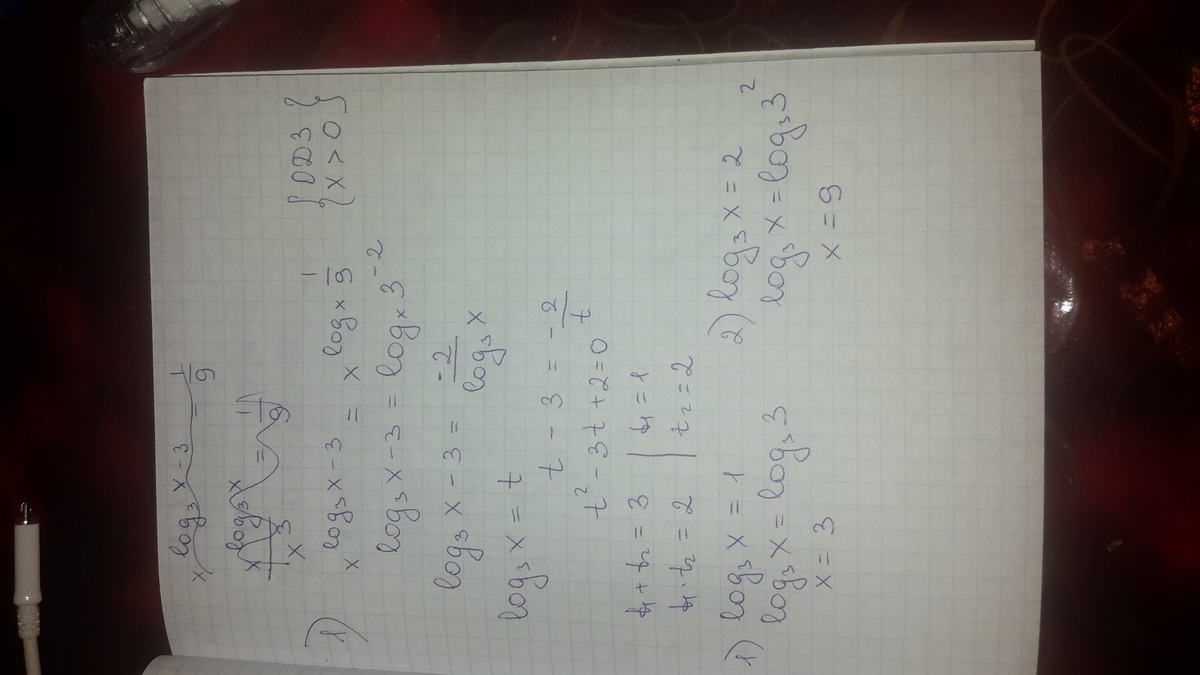 x^(log₃x-3) = 1/9
x^(log₃x)/x³ = 1/9
1) x^(log₃x-3) = x^(logₓ 1/9) { ОДЗ x > 0 }
log₃x-3 = logₓ3⁻²
log₃x-3 = -2/log₃x
log₃x = t
t - 3 = -2/t
t² - 3t + 2 = 0
t₁ + t₂ = 3 | t₁ = 1
t₁·t₂ = 2 | t₂ = 2
1) log₃x = 1
log₃x = log₃3
x = 3
2) log₃x = 2
log₃x = log₃3²
x = 9